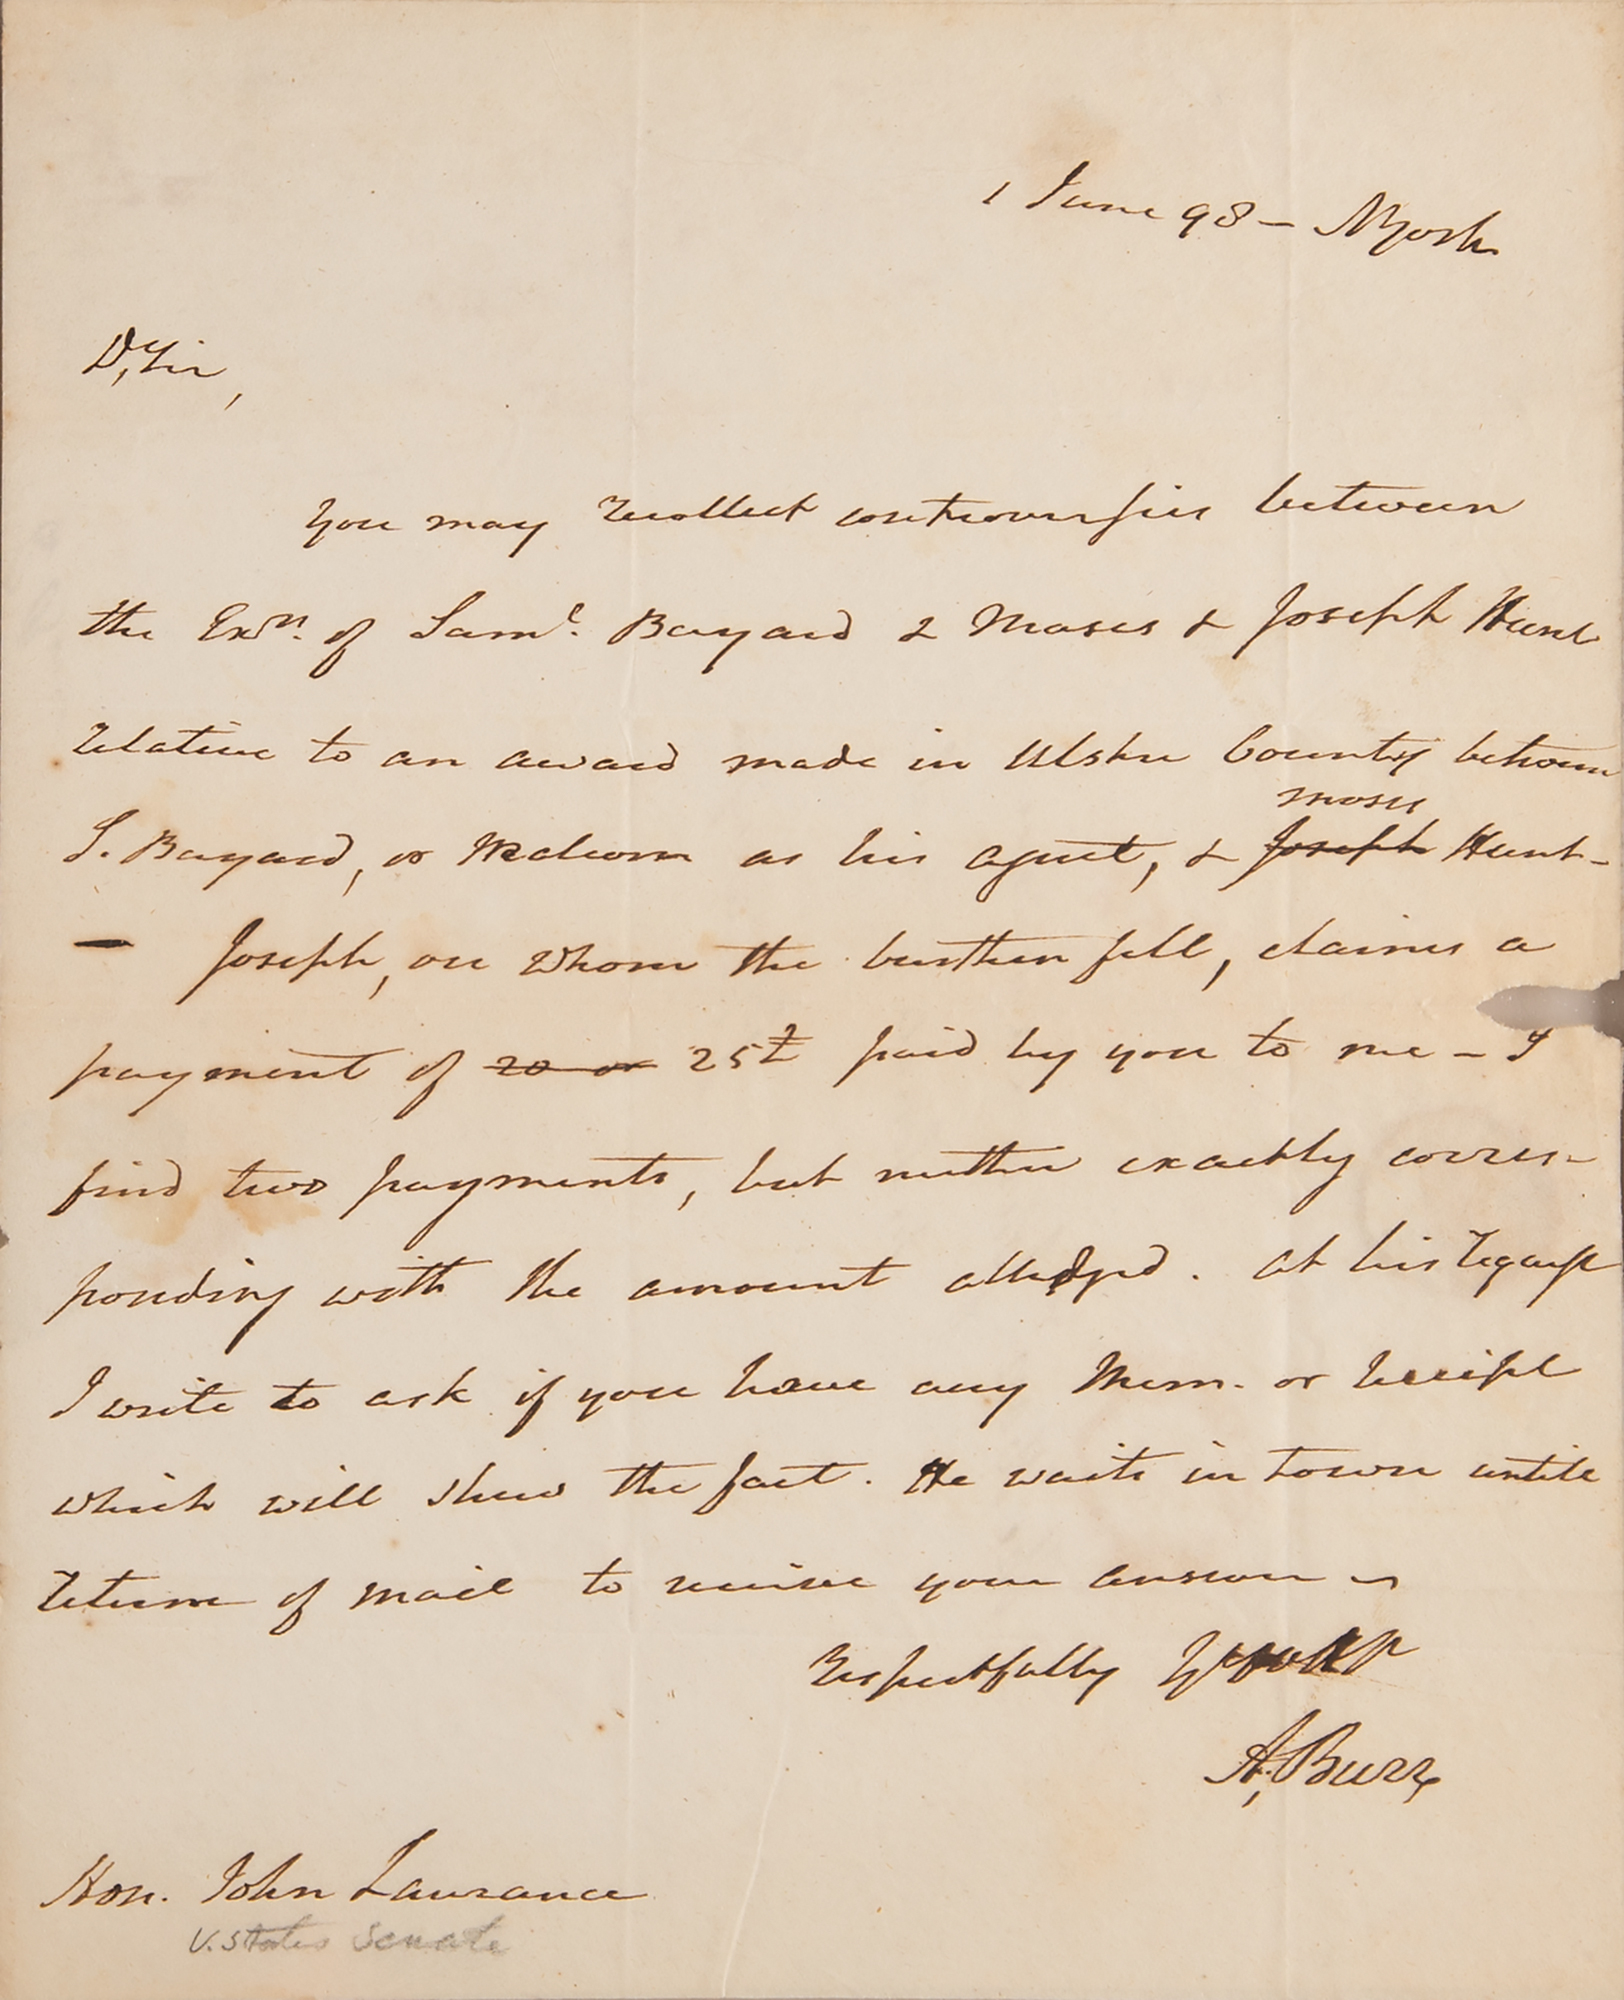 1 June 98 - NYork
Dr Sir,
You may recollect controversies between
the Exrs. of Saml. Bayard & Moses & Joseph Hunt
relative to an award made in Ulster County between
Moses
S. Bayard, or Malcom as his agent, & Joseph Hunt -
- Joseph, on whom the burthen fell, claims a
payment of 20 or 25£ paid by you to me - I
find two payments, but neither exactly corres-
ponding with the amount alledged. At his request
I write to ask if you have any Mem. or receipt
which will shew the fact. He waits in town untill
return of mail to receive your answer -
Respectfully
A, Burr
Hon. John Laurance
U. States Senate